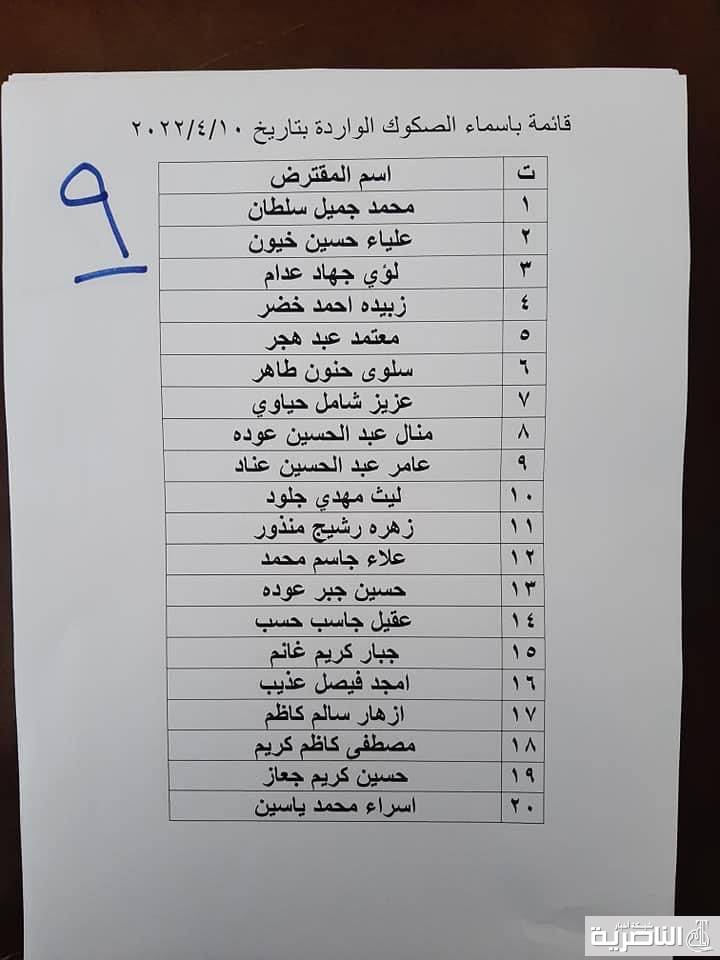 قائمة باسماء الصكوك الواردة بتاريخ ٢٠٢٢/٤/١٠
٩
ت اسم المقترض
١ محمد جميل سلطان
٢ علياء حسين خيون
٣ لؤي جهاد عدام
٤ زبيده احمد خضر
٥ معتمد عبد هجر
٦ سلوى حنون طاهر
٧ عزيز شامل حياوي
٨ منال عبد الحسين عوده
٩ عامر عبد الحسين عناد
١٠ ليث مهدي جلود
١١ زهره رشيج منذور
١٢ علاء جاسم محمد
١٣ حسين جبر عوده
١٤ عقيل جاسب حسب
١٥ جبار كريم غانم
١٦ امجد فيصل عذيب
١٧ ازهار سالم كاظم
١٨ مصطفى كاظم كريم
١٩ حسين كريم جعاز
٢٠ اسراء محمد ياسين
شبكة اخبار
الناصرية